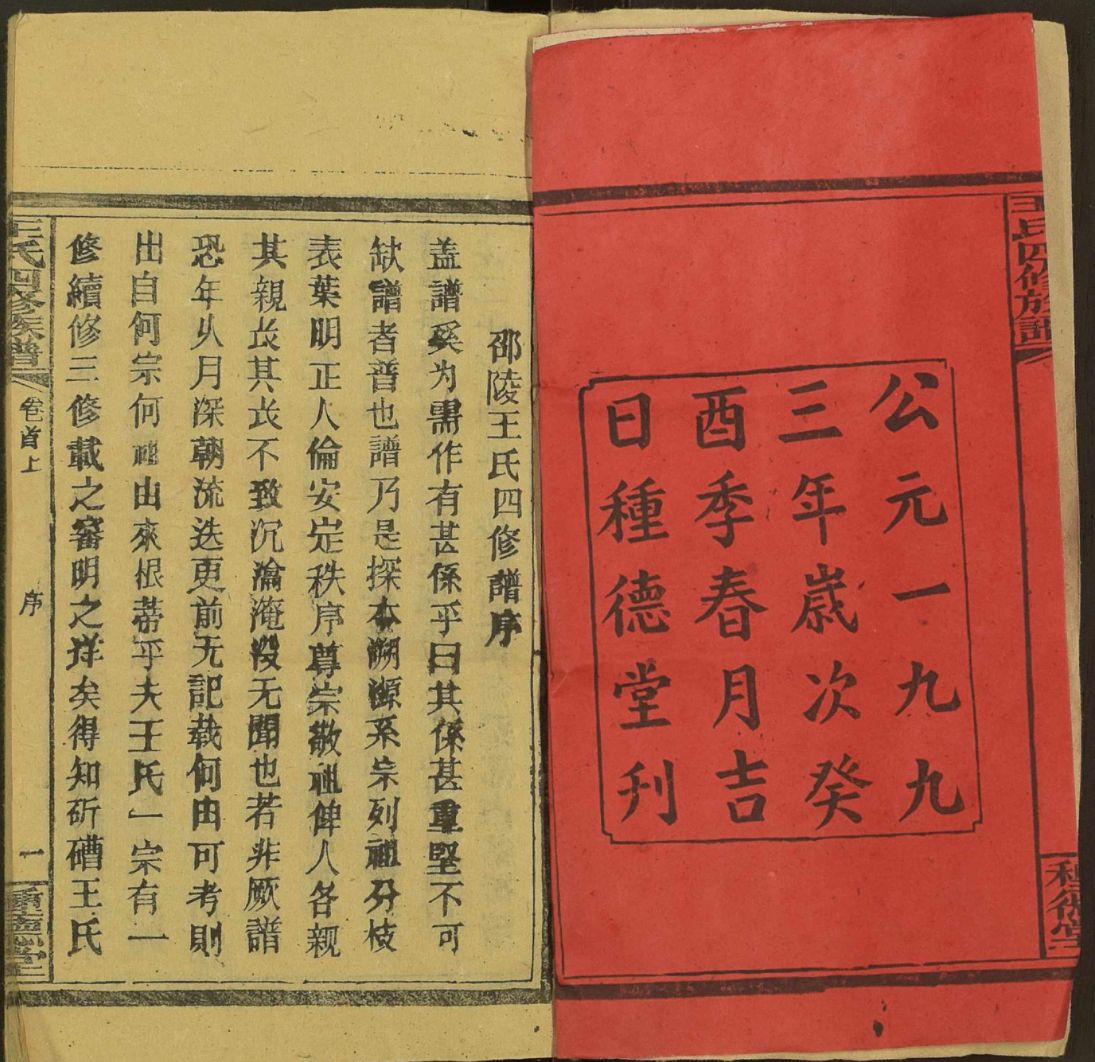 王氏四修族譜
公元一九九
三年歲次癸
酉季春月吉
日種德堂刊
種德堂
邵陵王氏四修譜序
盖譜奚为需作有甚係乎曰其係甚重堅不可
缺譜者普也譜乃是探本溯源系宗列祖分枝
表葉明正人倫安定秩序尊宗敬祖俾人各親
其親长其长不致沉淪淹没无聞也若非厥譜
恐年久月深朝流迭更前无記载何由可考則
出自何宗何祖由來根蒂乎夫王氏一宗有一
修續修三修載之審明之详矣得知斫磳王氏
王氏四修族譜 卷首上 序 一 種德堂